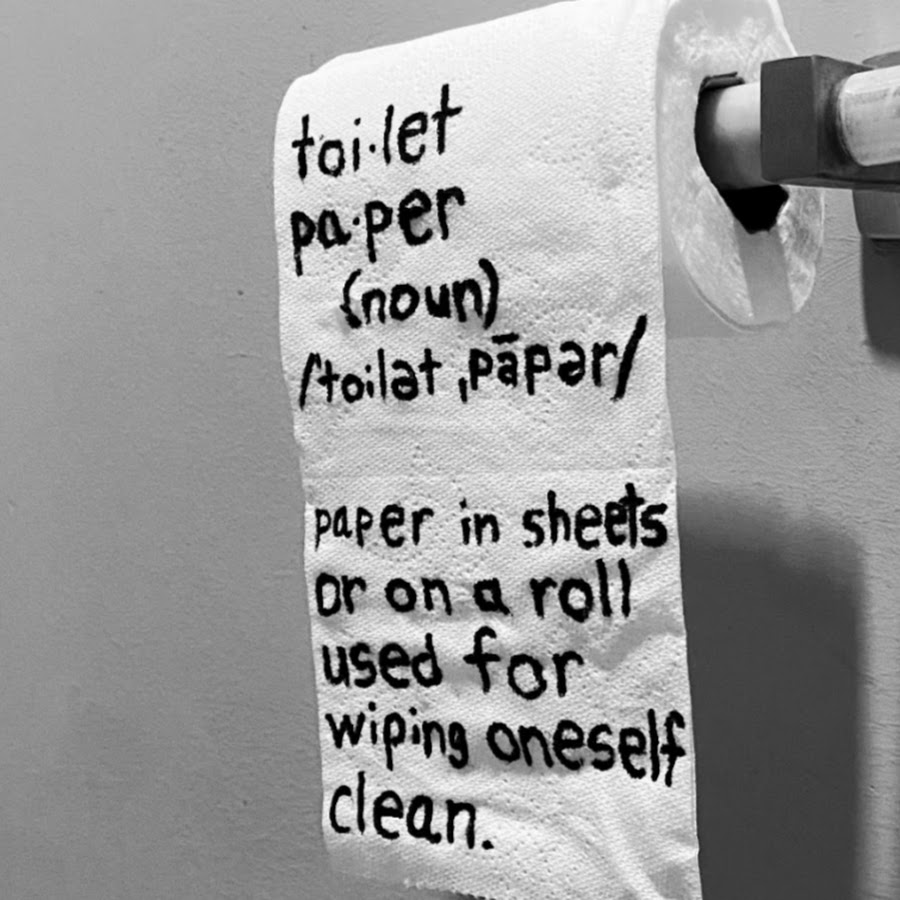 toi·let
pa·per
(noun)
/ˈtoilət ˌpāpər/
paper in sheets
or on a roll
used for
wiping oneself
clean.